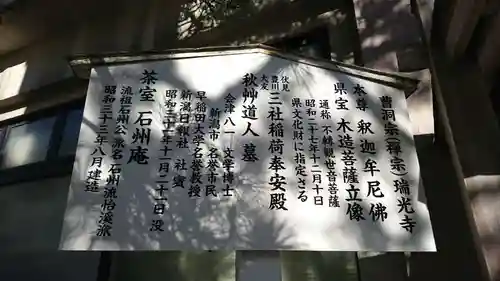 曹洞宗(禅宗)瑞光寺
本尊 釈迦牟尼佛
県宝 木造菩薩立像
通称 不轉菩薩
昭和二十七年十二月十日
県文化財に指定さる
伏見
豊川
大友
三社稲荷奉安殿
秋艸道人墓
会津八一 文学博士
新潟市 名誉市民
早稲田大学名誉教授
新潟日報社 社賓
昭和三十一年十一月二十一日 没
茶室 石州庵
流祖石州公 派名 石州流怡渓派
昭和三十三年八月建造